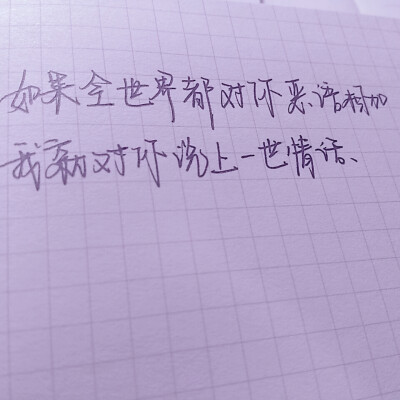 如果全世界都对你恶语相加
我就对你说上一世情话、